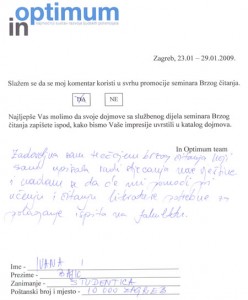 in optimum
Zagreb, 23.01 – 29.01.2009.
Slažem se da se moj komentar koristi u svrhu promocije seminara Brzog čitanja.
DA NE
Najljepše Vas molimo da svoje dojmove sa službenog dijela seminara Brzog čitanja
zapišete ispod, kako bismo Vaše impresije uvrstili u katalog dojmova.
In Optimum team
Zadovoljna sam tečajem brzog čitanja koji
sam upisala radi stjecanja nove vještine
i nadam se da će mi pomoći pri
učenju i čitanju literature potrebne za
polaganje ispita na fakultetu.
Ime – IVANA
Prezime –
Zanimanje – STUDENTICA
Poštanski broj i mjesto – 10 000 ZAGREB